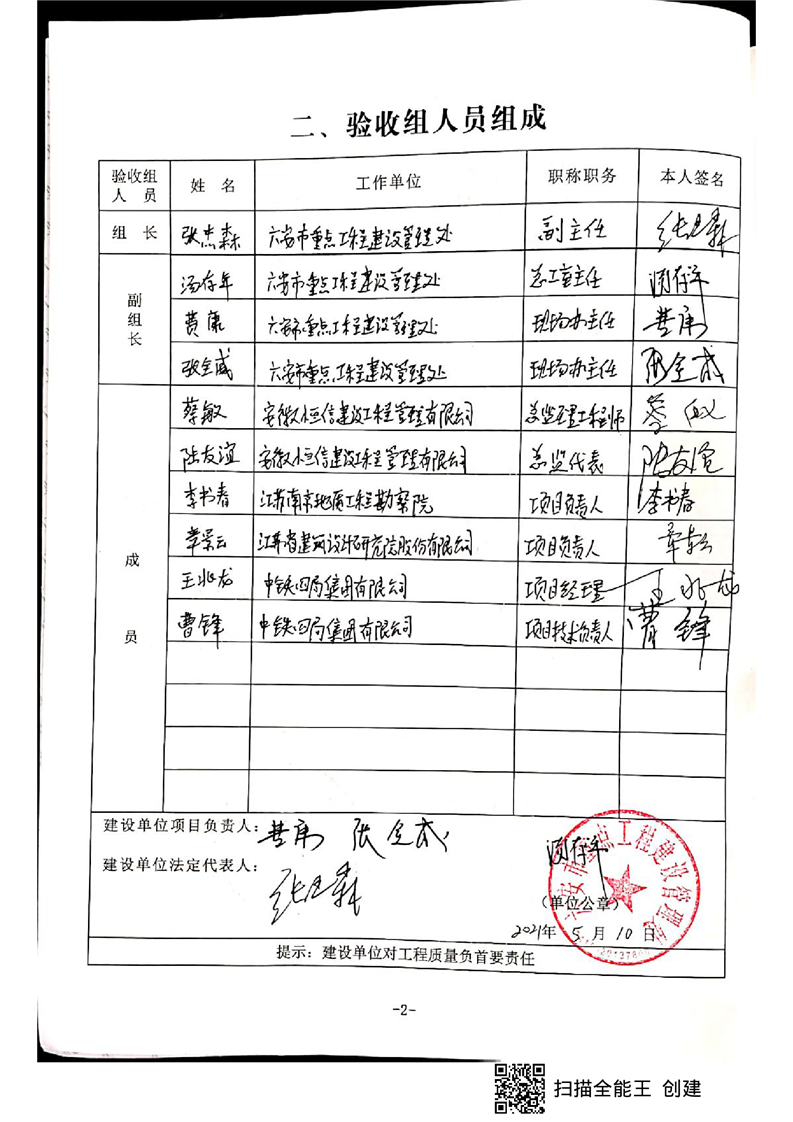 二、验收组人员组成
验收组人员 姓名 工作单位 职称职务 本人签名
组长 张杰森 六安市重点工程建设管理处 副主任 张杰森
副组长 汤存年 六安市重点工程建设管理处 总工室主任 汤存年
黄康 六安市重点工程建设管理处 现场办主任 黄康
张全威 六安市重点工程建设管理处 现场办主任 张全威
成员 蔡敏 安徽恒信建设工程管理有限公司 总监理工程师 蔡敏
陆友谊 安徽恒信建设工程管理有限公司 总监代表 陆友谊
李书春 江苏南京地质工程勘察院 项目负责人 李书春
江苏省建筑设计研究院股份有限公司 项目负责人
王兆龙 中铁四局集团有限公司 项目经理 王兆龙
曹锋 中铁四局集团有限公司 项目技术负责人 曹锋
建设单位项目负责人：黄康 张全威 汤存年
建设单位法定代表人：张杰森
六安市重点工程建设管理处
（单位公章）
2021年 5 月 10 日
提示：建设单位对工程质量负首要责任
-2-
扫描全能王 创建